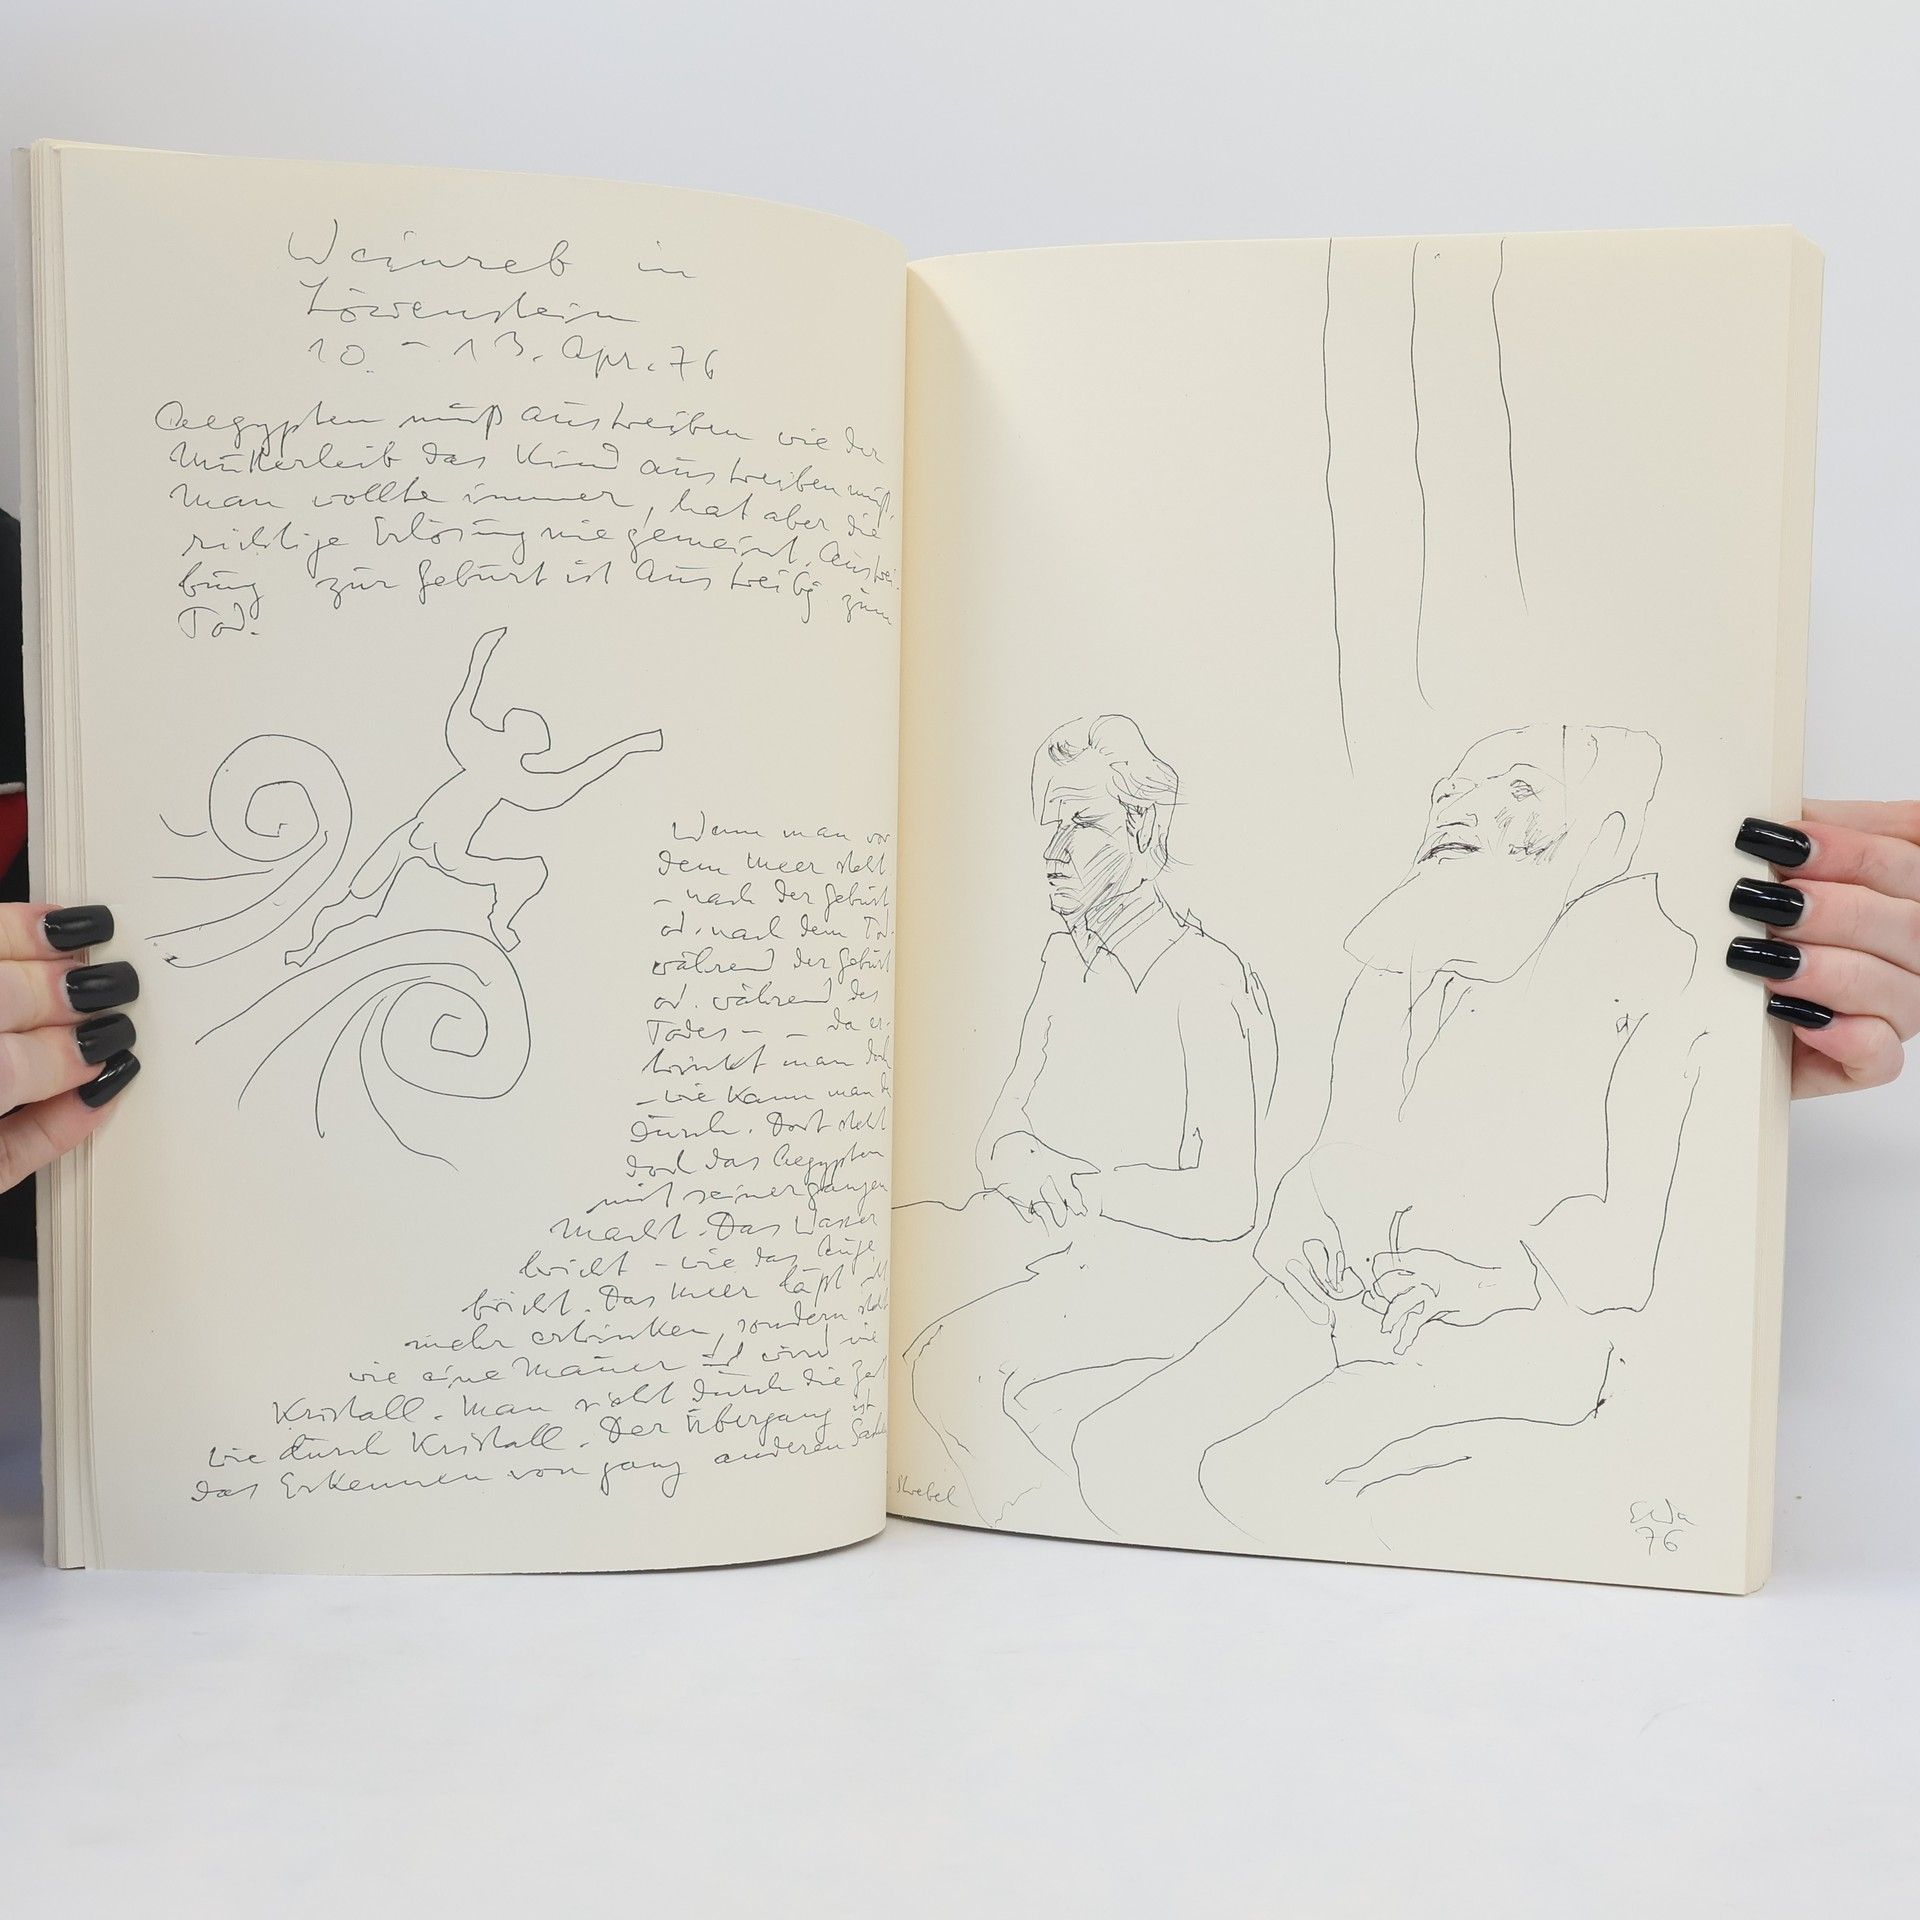 Weinreb in
Löwenstein
10. - 13. Apr. 76
Aegypten muß austreiben wie der
Mutterleib das Kind austreiben muß.
Man wollte immer, hat aber die
richtige Erlösung nie gemeint. Austrei-
bung zur Geburt ist Austreibg zum
Tod.
Wenn man vor
dem Meer steht
- nach der Geburt
od. nach dem Tod -
während der Geburt
od. während des
Todes - - da er-
trinkt man doch
- wie kann man da
durch. Dort steht
doch das Aegypten
mit seiner ganzen
Macht. Das Wasser
bricht - wie das Auge
bricht. Das Meer läßt nicht
mehr ertrinken, sondern steht
wie eine Mauer und wird wie
Kristall. Man sieht durch die Zeit
wie durch Kristall. Der Übergang ist
das Erkennen von ganz anderen
Strebel
76